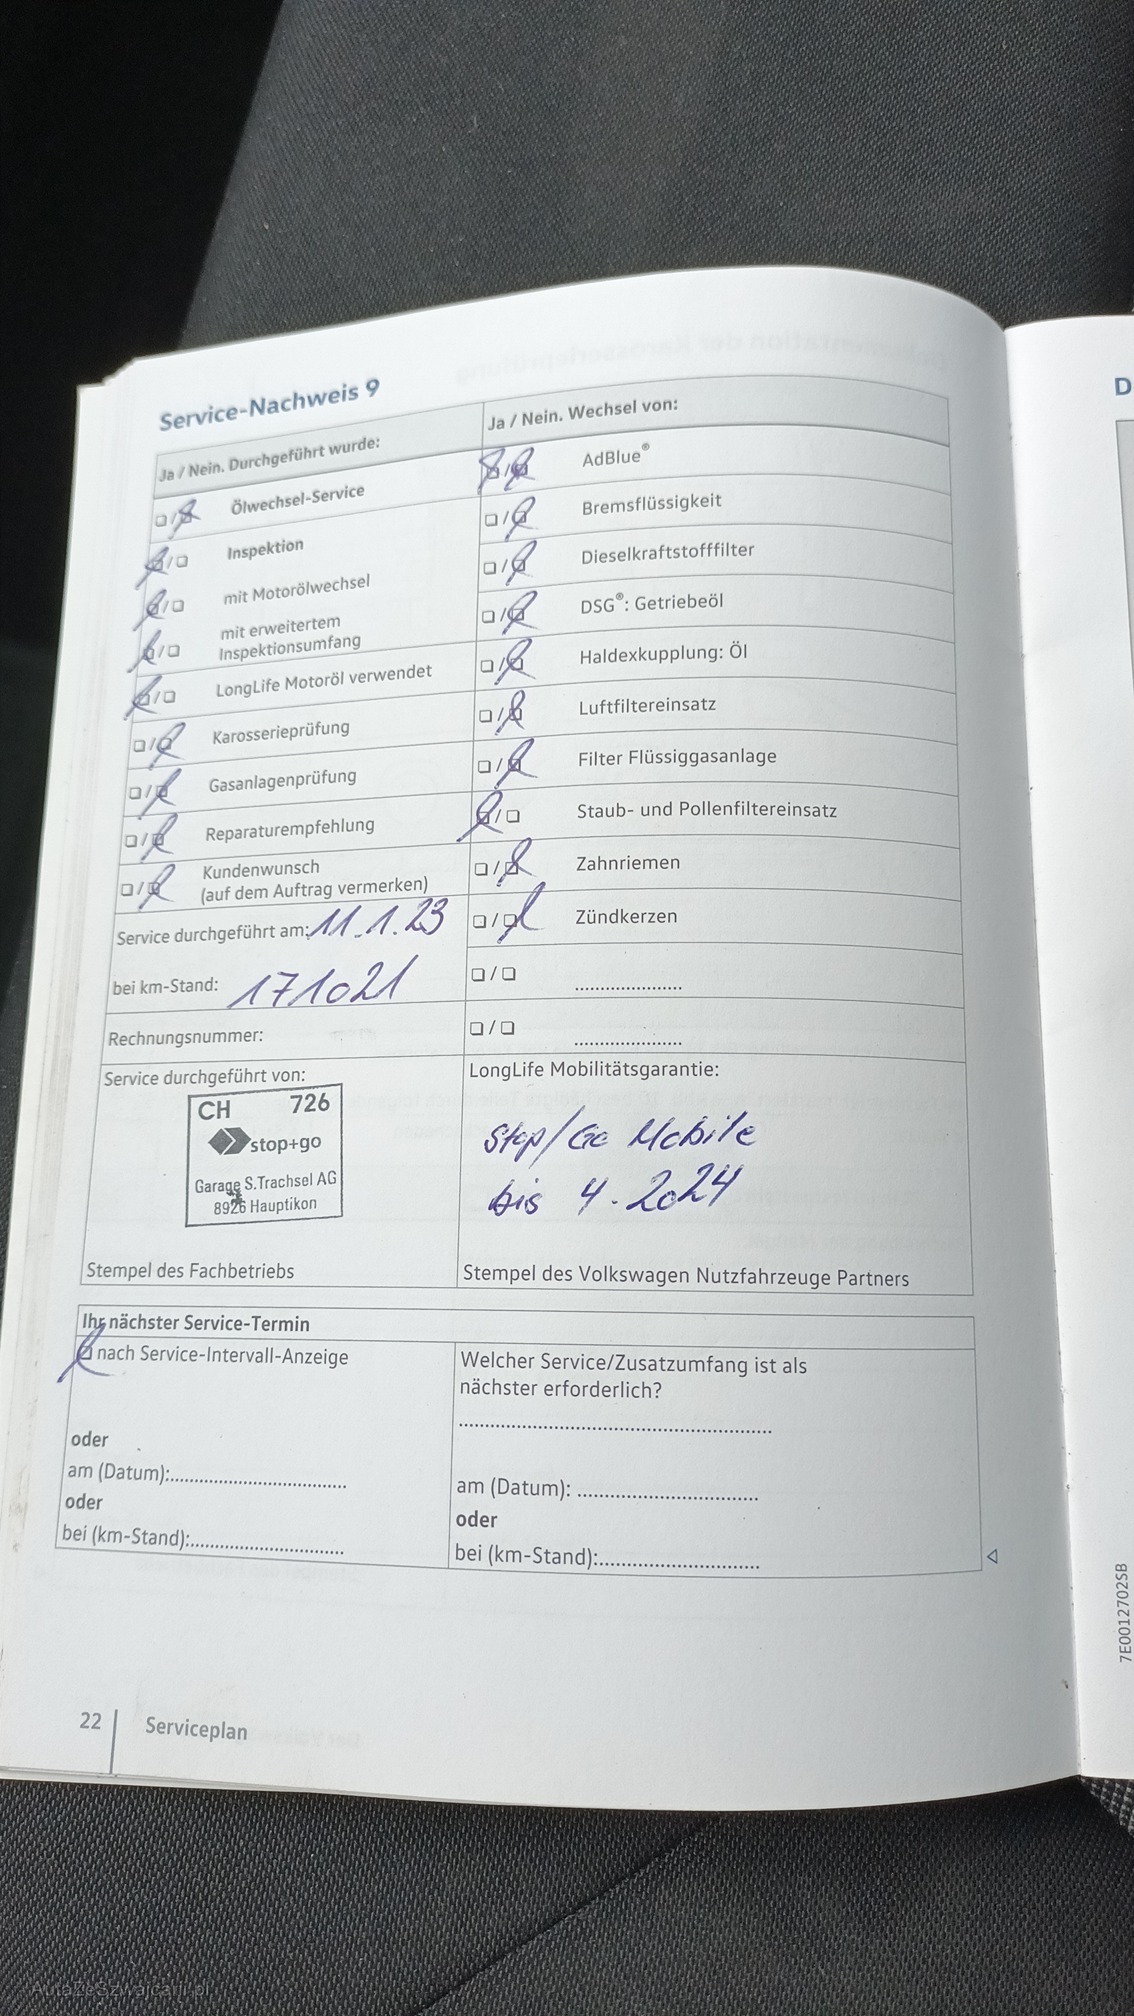 Service-Nachweis 9
Ja / Nein. Durchgeführt wurde:
Ölwechsel-Service
Inspektion
mit Motorölwechsel
mit erweitertem
Inspektionsumfang
LongLife Motoröl verwendet
Karosserieprüfung
Gasanlagenprüfung
Reparaturempfehlung
Kundenwunsch
(auf dem Auftrag vermerken)
Service durchgeführt am: 11.1.23
bei km-Stand: 171021
Rechnungsnummer:
Service durchgeführt von:
CH 726
stop+go
Garage S.Trachsel AG
8926 Hauptikon
Stempel des Fachbetriebs
Ja / Nein. Wechsel von:
AdBlue®
Bremsflüssigkeit
Dieselkraftstofffilter
DSG®: Getriebeöl
Haldexkupplung: Öl
Luftfiltereinsatz
Filter Flüssiggasanlage
Staub- und Pollenfiltereinsatz
Zahnriemen
Zündkerzen
LongLife Mobilitätsgarantie:
Stop/Go Mobile
bis 4.2024
Stempel des Volkswagen Nutzfahrzeuge Partners
Ihr nächster Service-Termin
nach Service-Intervall-Anzeige
oder
am (Datum):
oder
bei (km-Stand):
Welcher Service/Zusatzumfang ist als
nächster erforderlich?
am (Datum):
oder
bei (km-Stand):
22 Serviceplan
D
7E0012702SB
AutaZeSzwajcarii.pl